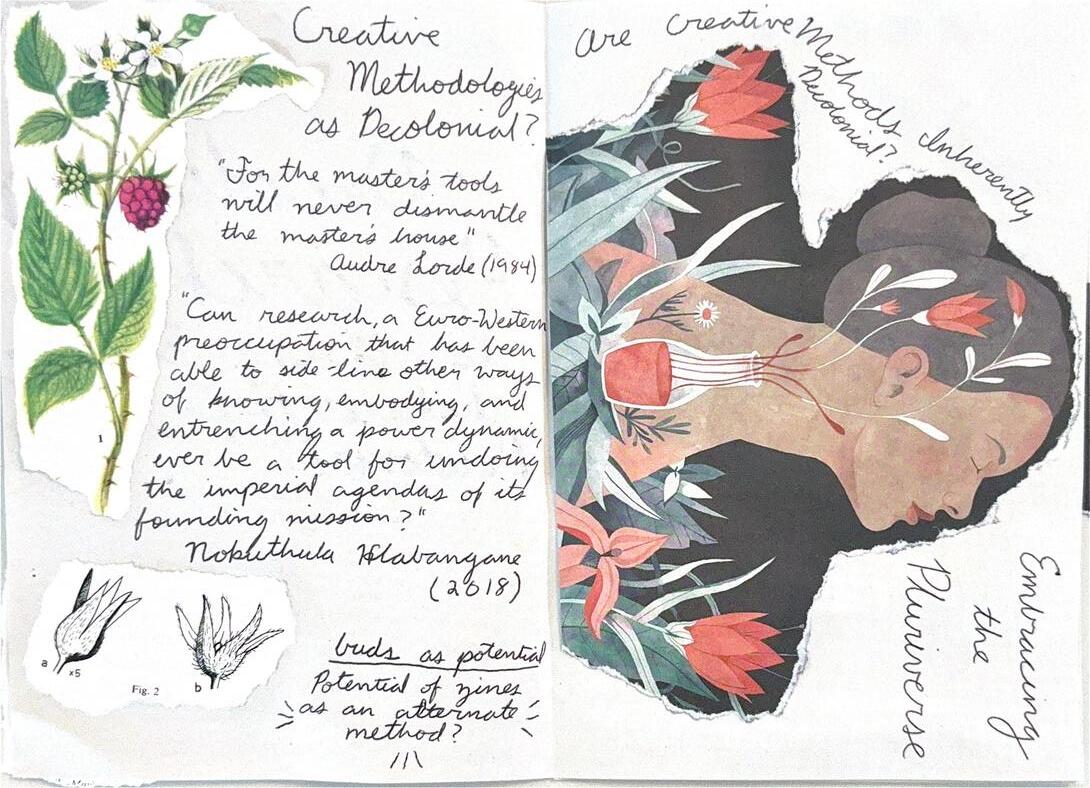 Creative
Methodologies
as Decolonial?
"For the master's tools
will never dismantle
the master's house"
Audre Lorde (1984)
"Can research, a Euro-Western
preoccupation that has been
able to side-line other ways
of knowing, embodying, and
entrenching a power dynamic,
ever be a tool for undoing
the imperial agendas of its
founding mission?"
Nokuthula Hlabangane
(2018)
1
a
x5
Fig. 2
b
buds as potential
Potential of zines
as an alternate
method?
Are Creative Methods Inherently
Decolonial?
Embracing
the
Pluriverse